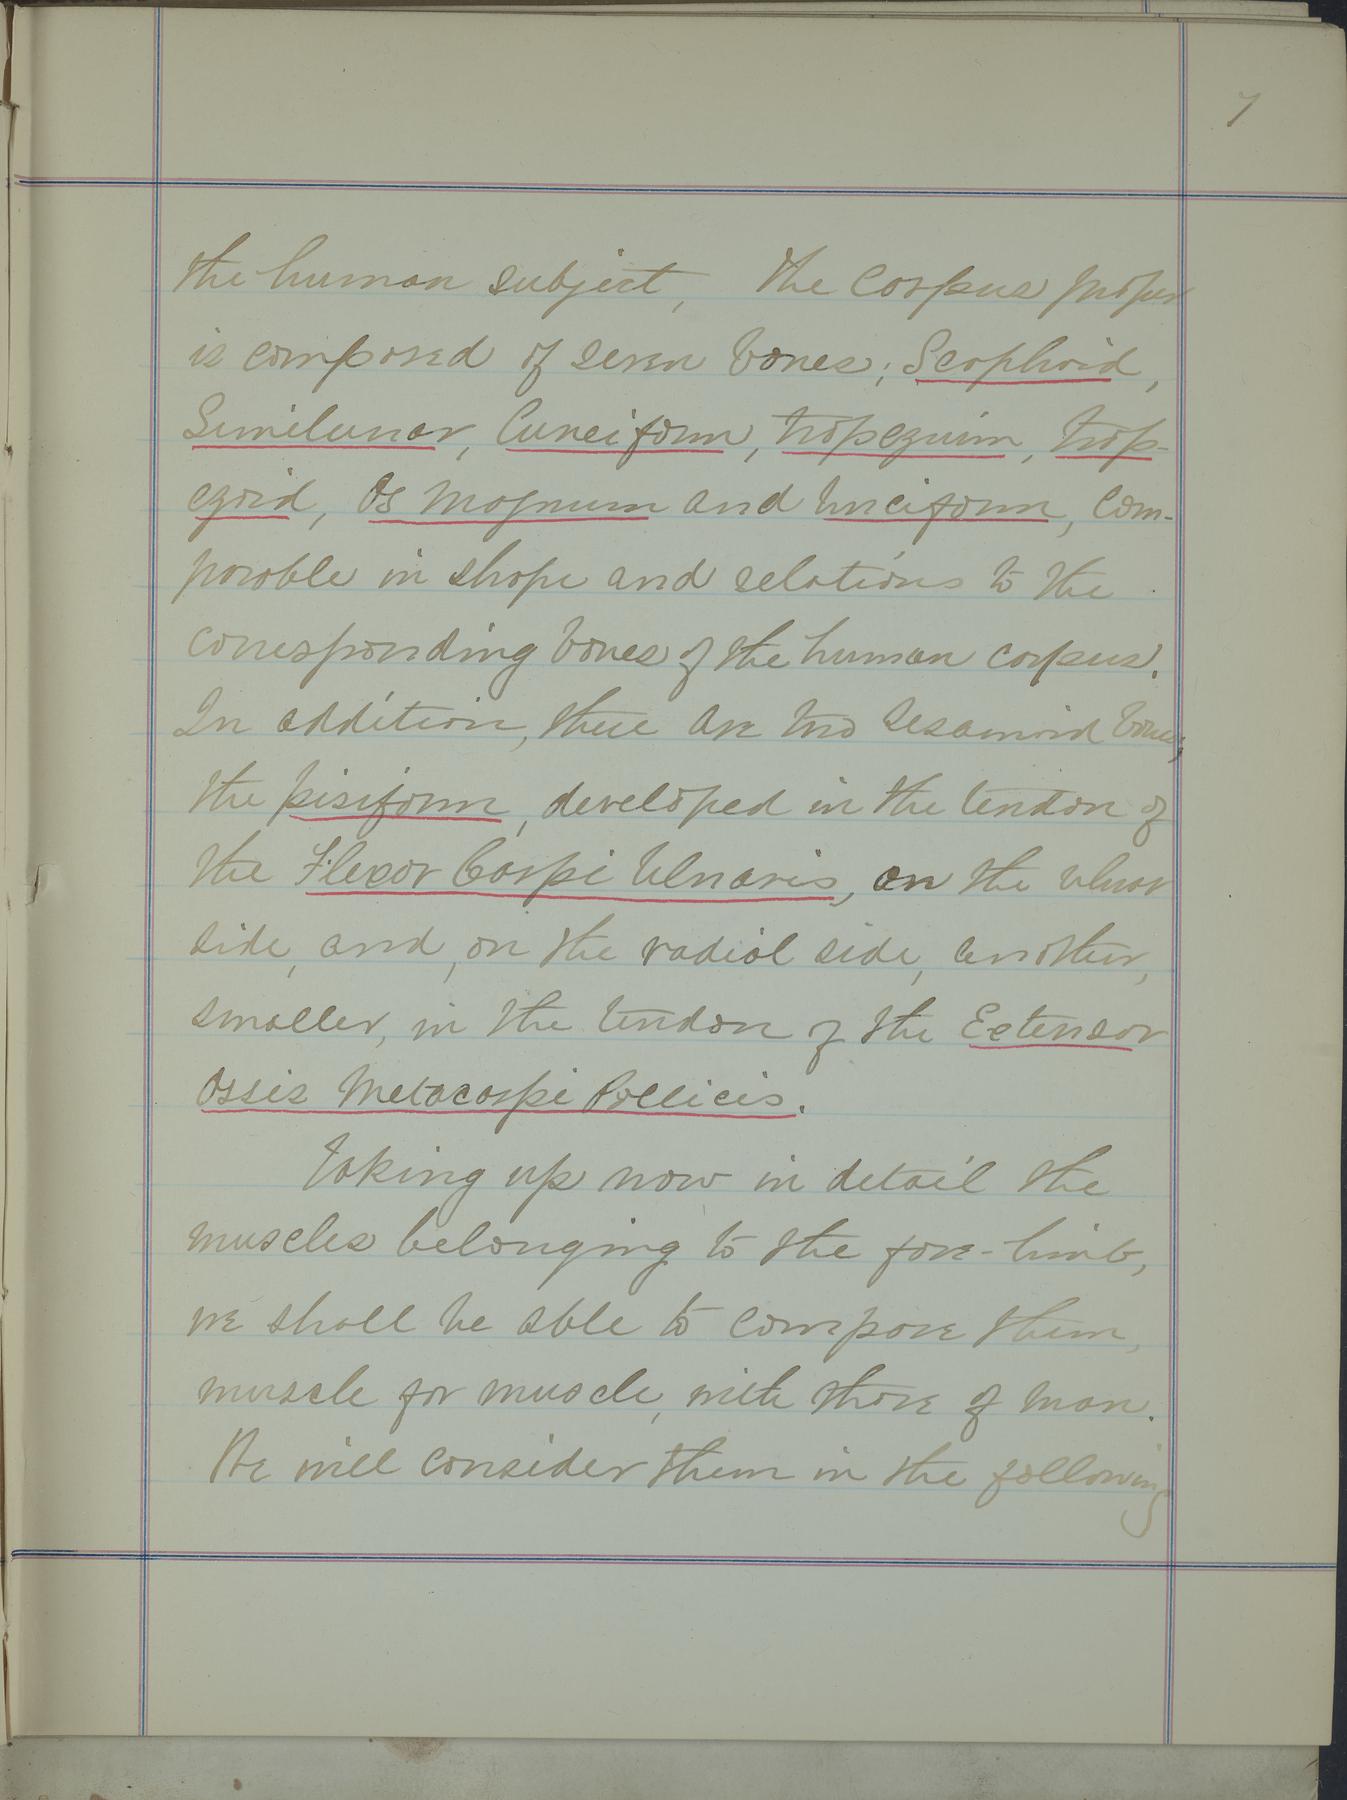 7
the human subject, the carpus proper
is composed of seven bones; Scaphoid,
Similunar, Cuneiform, trapezium, trap-
ezoid, Os Magnum and Unciform, com-
parable in shape and relations to the
corresponding bones of the human carpus.
In addition, there are two sesamoid bones,
the pisiform, developed in the tendon of
the Flexor Carpi Ulnaris, on the ulnar
side, and, on the radial side, another,
smaller, in the tendon of the Extensor
Ossis Metacarpi Pollicis.
Taking up now in detail the
muscles belonging to the fore-limb,
we shall be able to compare them,
muscle for muscle, with those of man.
We will consider them in the following